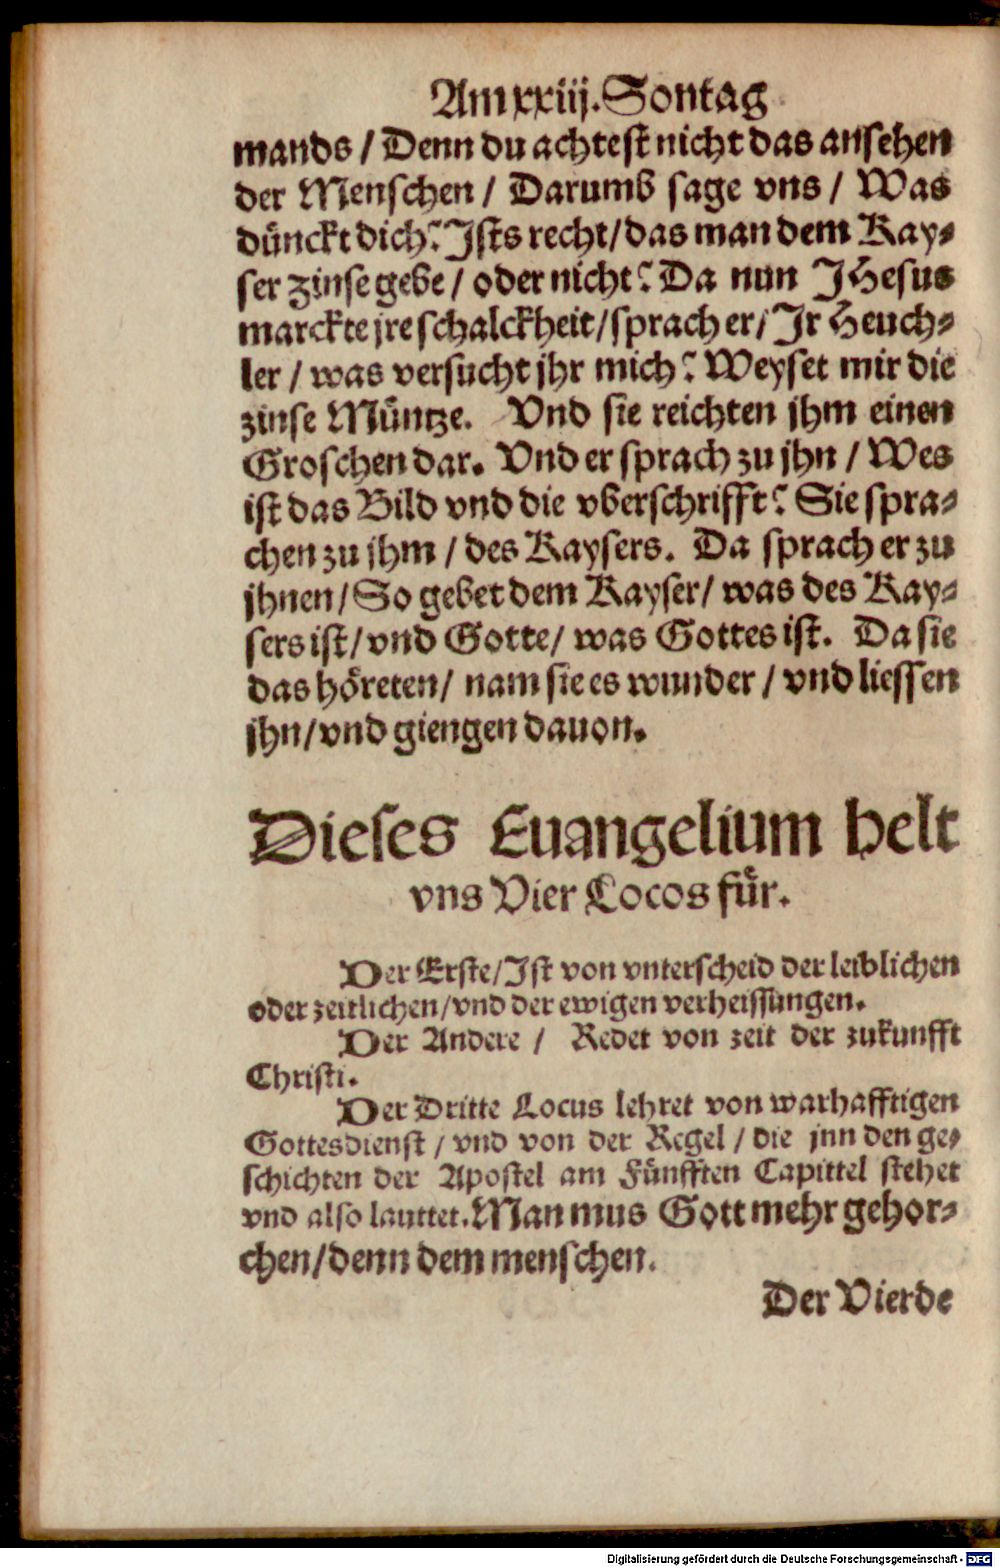 Am xxiij. Sontag
mands / Denn du achtest nicht das ansehen
der Menschen / Darumb sage vns / Was
dünckt dich? Ists recht / das man dem Kay-
ser zinse gebe / oder nicht? Da nun JHesus
marckte jre schalckheit / sprach er / Jr Heuch-
ler / was versucht jhr mich? Weyset mir die
zinse Müntze. Vnd sie reichten jhm einen
Groschen dar. Vnd er sprach zu jhn / Wes
ist das Bild vnd die vberschrifft? Sie spra-
chen zu jhm / des Kaysers. Da sprach er zu
jhnen / So gebet dem Kayser / was des Kay-
sers ist / vnd Gotte / was Gottes ist. Da sie
das höreten / nam sie es wunder / vnd liessen
jhn / vnd giengen dauon.
Dieses Euangelium helt
vns Vier Locos für.
Der Erste / Ist von vnterscheid der leiblichen
oder zeitlichen / vnd der ewigen verheissungen.
Der Andere / Redet von zeit der zukunfft
Christi.
Der Dritte Locus lehret von warhafftigen
Gottesdienst / vnd von der Regel / die jnn den ge-
schichten der Apostel am Fünfften Capittel stehet
vnd also lauttet. Man mus Gott mehr gehor-
chen / denn dem menschen.
Der Vierde
Digitalisierung gefördert durch die Deutsche Forschungsgemeinschaft - DFG